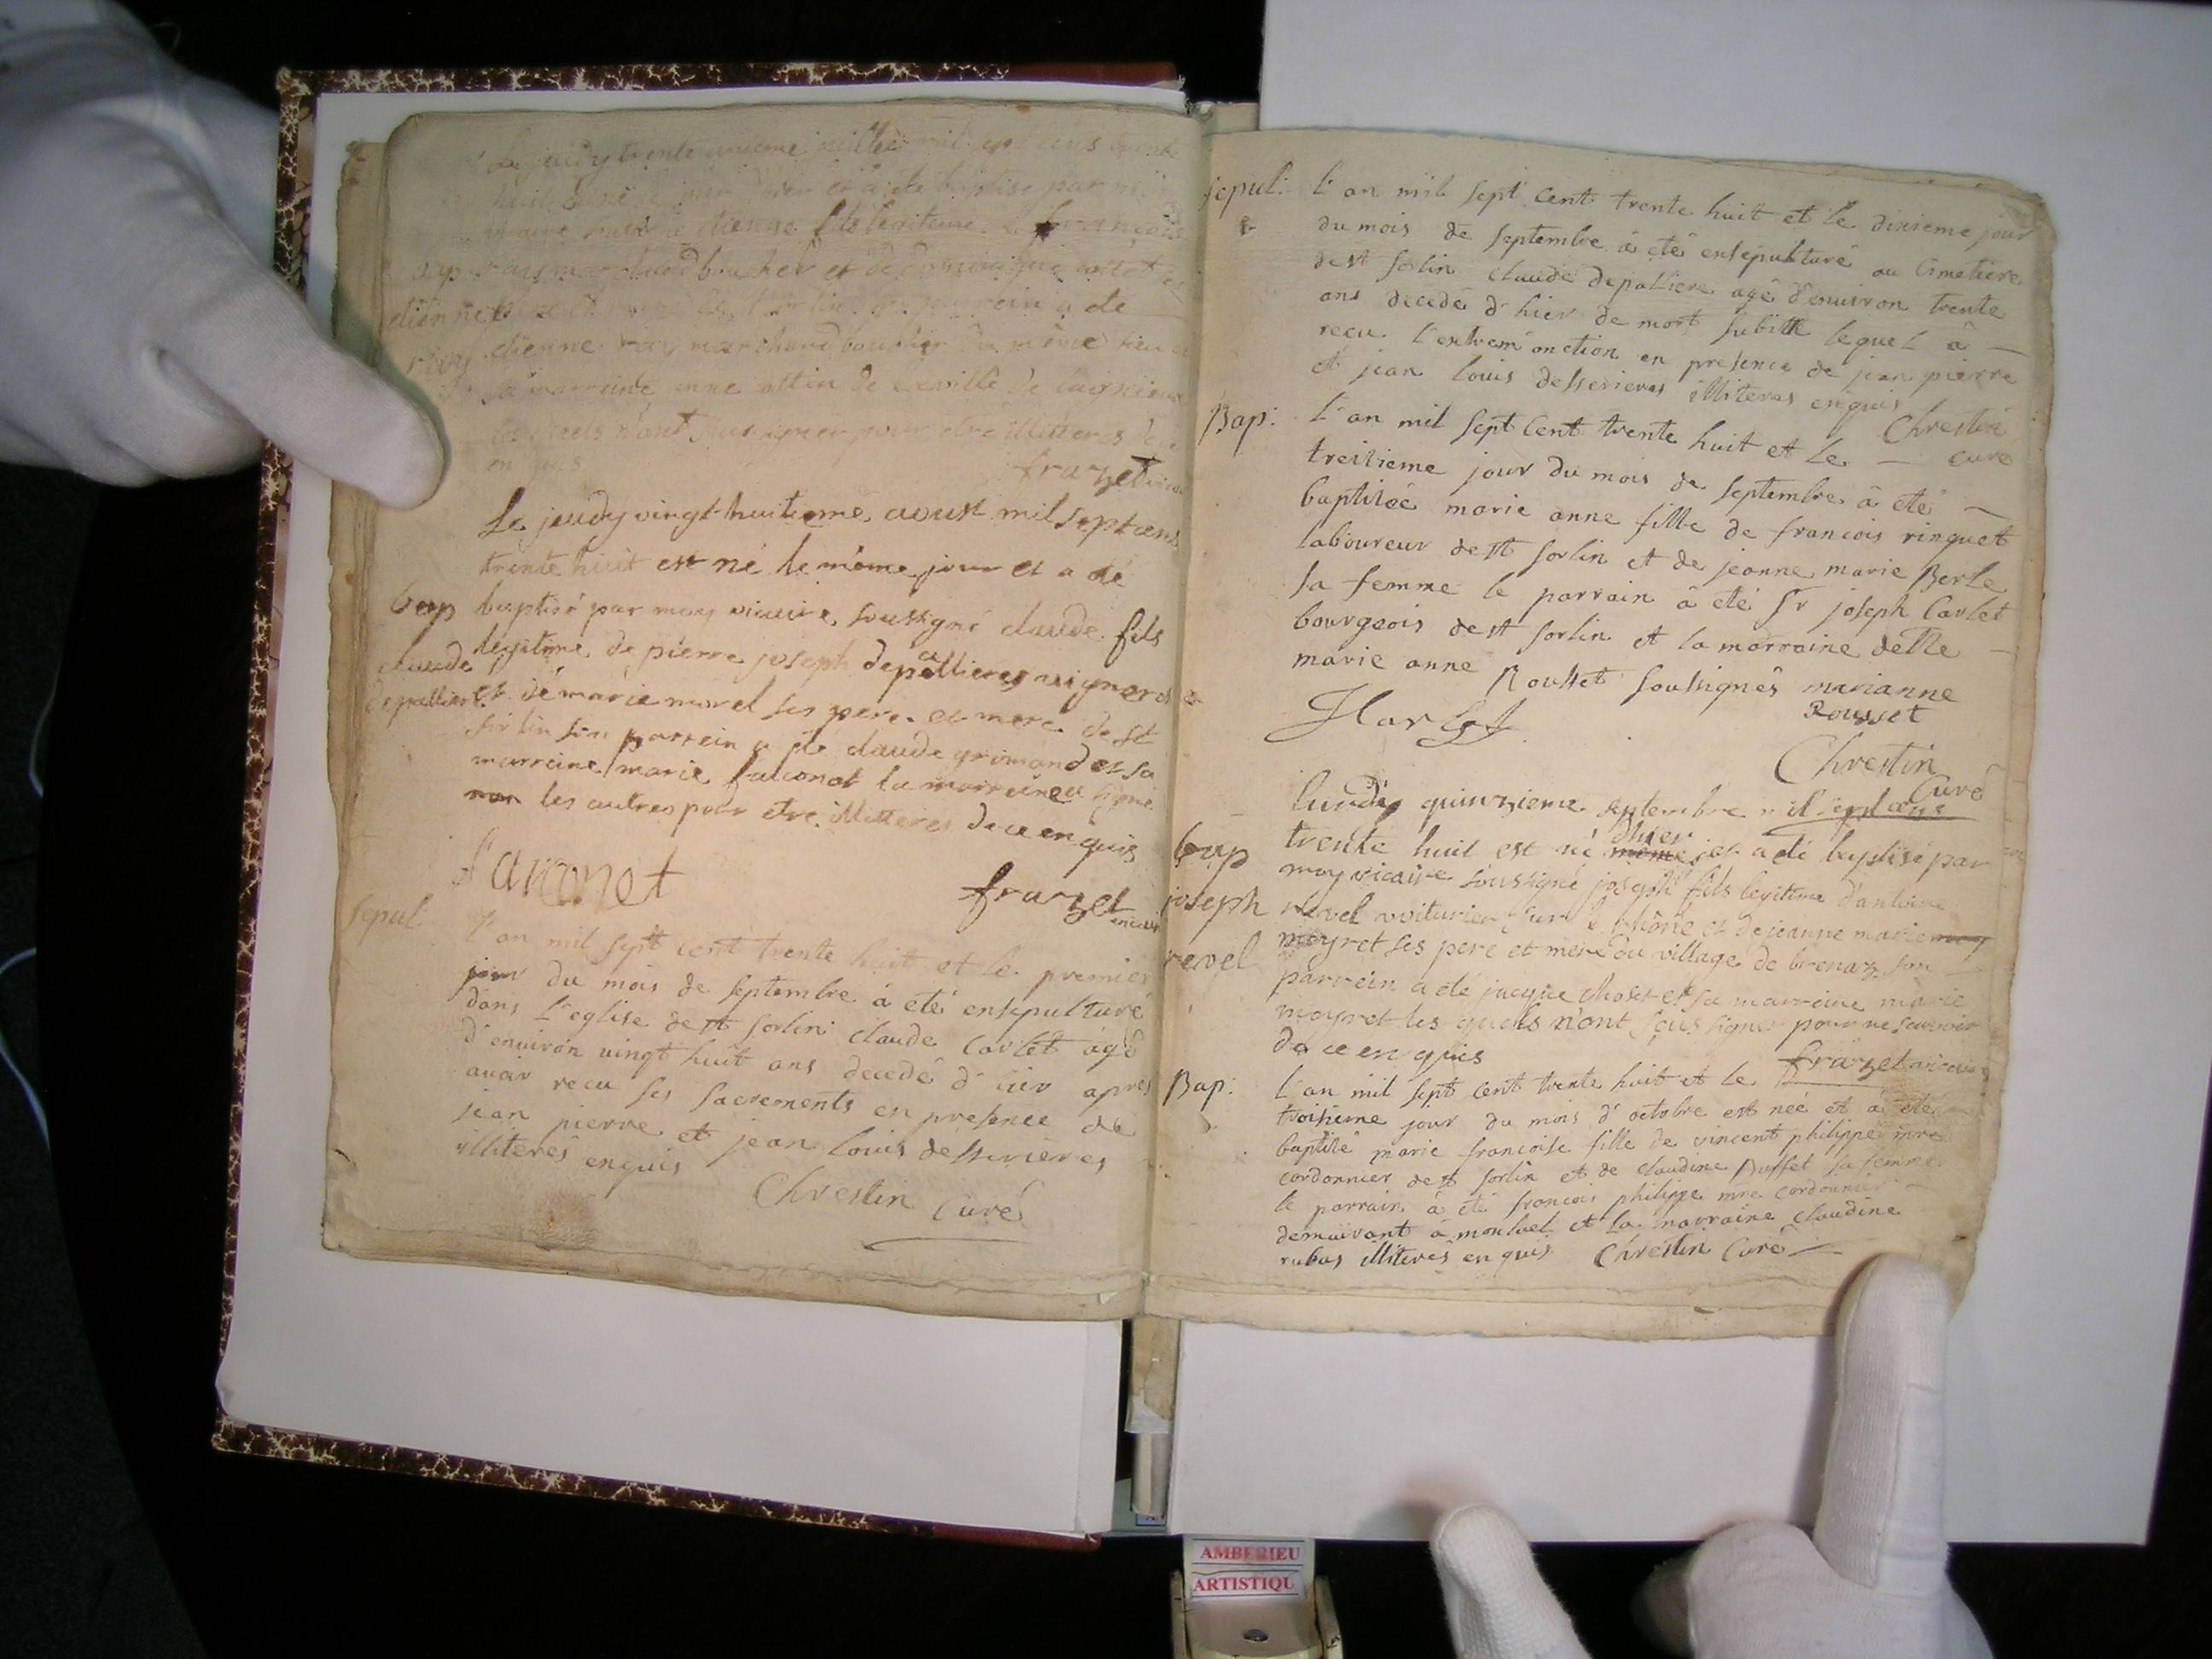 Le jeudy trente unieme juillet mil sept cens trente
huit est né le jour d'hier et a été baptisé par moy
vicaire etienne fils legitime de francois
bap roy marchand boucher et de
etienne de st sorlin son parrein a ete
roy etienne roy marchand boucher du même lieu et
sa marreine anne de la ville de
lesquels n'ont sçus signer pour etre illitteres de ce
enquis
frazet vicaire
Le jeudy vingt-huitieme aoust mil sept cens
trente huit est né le même jour et a été
bap baptisé par moy vicaire soussigné claude fils
claude legitime de pierre joseph depallieres vigneron
depalliere et de marie morel ses pere et mere de st
sorlin son parrein a été claude grimand et sa
marreine marie falconot la marreine a signé
non les autres pour etre illitteres de ce enquis
frazet
vicaire
sepul: L'an mil sept cent trente huit et le premier
jour du mois de septembre à eté ensepulturé
dans l'eglise de st sorlin claude carlet agé
d'environ vingt huit ans decedé d'hier apres
avoir recu ses sacrements en presence de
jean pierre et jean louis desserieres
illiterés enquis
Chrestin Curé
sepul: L'an mil sept cent trente huit et le dixieme jour
du mois de septembre à eté ensepulturé au Cimetiere
de st sorlin claude depalliere agé d'environ trente
ans decedé d'hier de mort subitte lequel à
recu l'extrem'onction en presence de jean pierre
et jean louis desserieres illiteres enquis
Chrestin
curé
Bap: L'an mil sept cent trente huit et le
treisieme jour du mois de septembre à eté
baptisée marie anne fille de francois ringuet
laboureur de st sorlin et de jeanne marie Berle
sa femme le parrain à eté Sr joseph Carlet
bourgeois de st sorlin et la marraine delle
marie anne Rousset soussignés marianne
Rousset
Chrestin
Curé
lundy quinzieme septembre mil sept cens
bap trente huit est né d'hier même et a été baptisé par
moy vicaire soussigné joseph fils legitime d'antoine
joseph revel voiturier sur le Rhône et de jeanne marie may
revel mayret ses pere et mere du village de brenaz son
parrein a été jacque et sa marreine marie
mayret les quels n'ont sçus signer pour ne sçavoir
de ce enquis
frazet vicaire
Bap: L'an mil sept cent trente huit et le
troisieme jour du mois d'octobre est neé et à eté
baptisé marie francoise fille de vincent philippe mre
cordonnier de st sorlin et de claudine Buffet sa femme
le parrain à eté francois philippe mre cordonnier
demeurant à monluel et la marraine claudine
rubas illiterés enquis Chrestin Curé
AMBERIEU
ARTISTIQU